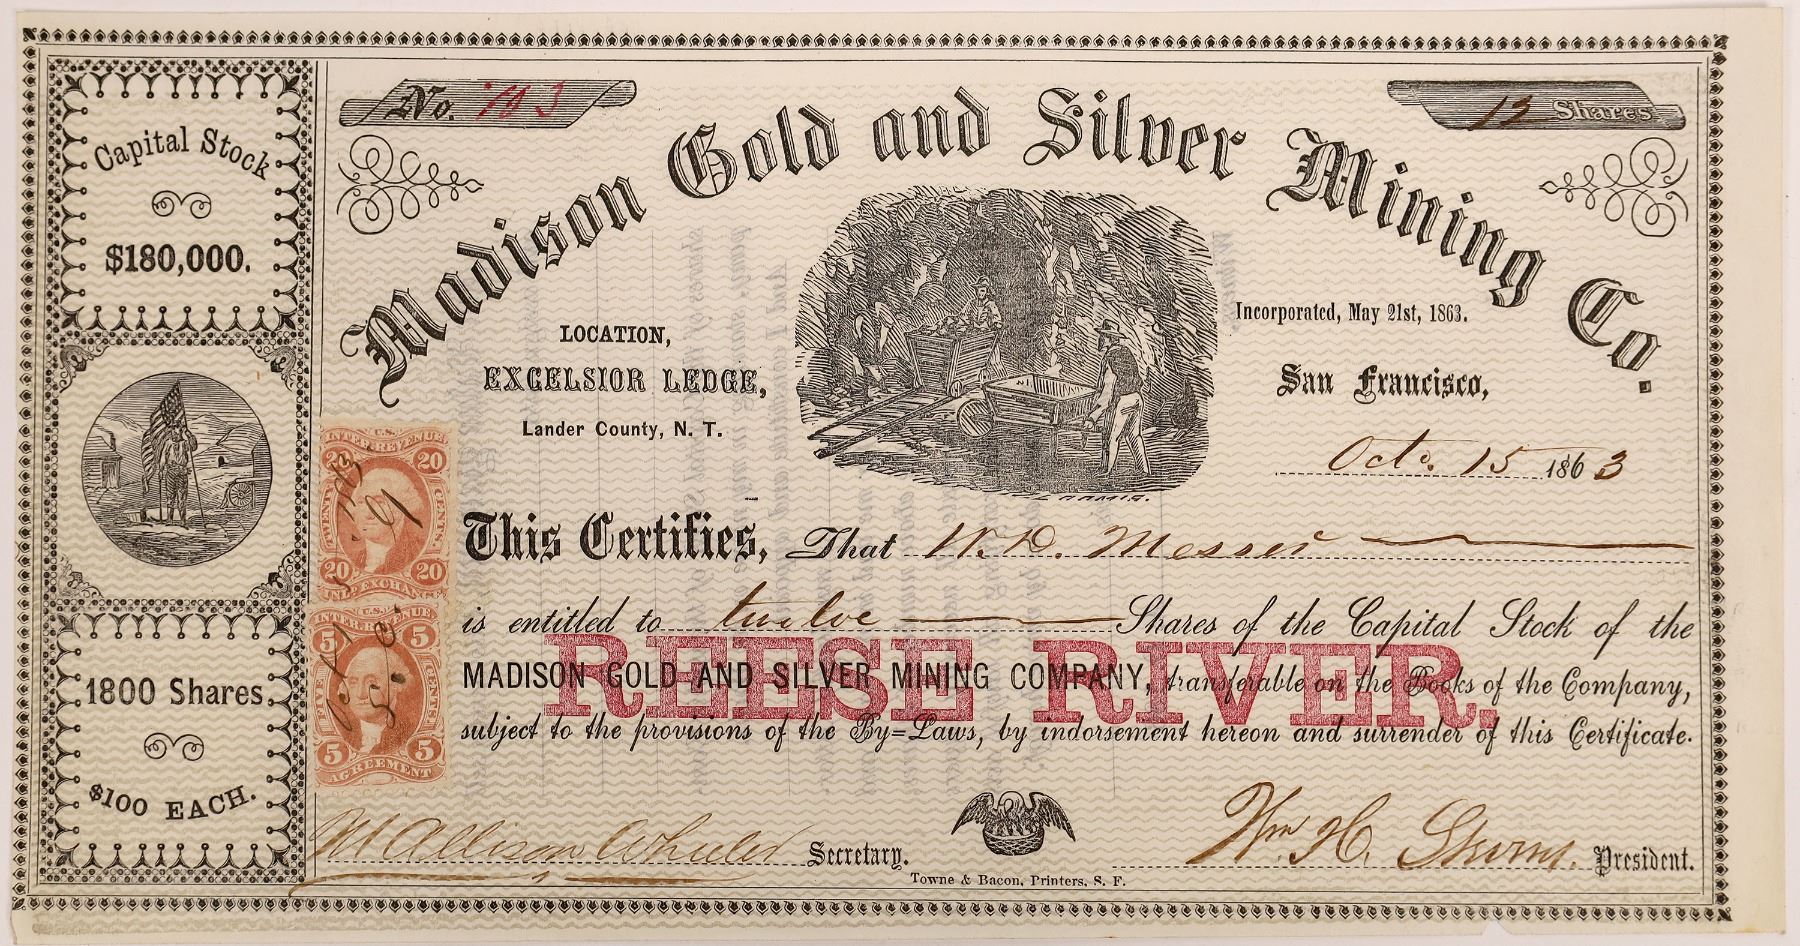 No. 103
12 Shares
Madison Gold and Silver Mining Co.
Capital Stock
$180,000.
1800 Shares
$100 EACH.
LOCATION,
EXCELSIOR LEDGE,
Lander County, N. T.
Incorporated, May 21st, 1863.
San Francisco,
Octo. 15 1863
U.S.
INTER. REVENUE
20 20
TWENTY CENTS
20 20
INL'D EXCHANGE
U.S.
INTER. REVENUE
5 5
FIVE CENTS
5 5
AGREEMENT
This Certifies, That W. D. Messer
is entitled to twelve Shares of the Capital Stock of the
MADISON GOLD AND SILVER MINING COMPANY, transferable on the Books of the Company,
REESE RIVER.
subject to the provisions of the By=Laws, by indorsement hereon and surrender of this Certificate.
M Allison Wheeler Secretary.
Wm. H. Stevens. President.
Towne & Bacon, Printers, S. F.